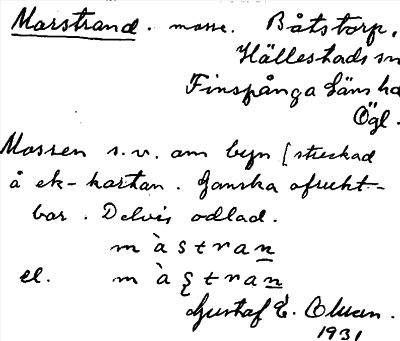 Marstrand. mosse. Båtstorp,
Hällestads sn
Finspånga läns hd
Ögl.
Mossen s.v. om byn [streckad
å ek-kartan. Ganska ofrukt-
bar. Delvis odlad.
màstran
el. màştran
Gustaf E. Olsson.
1931